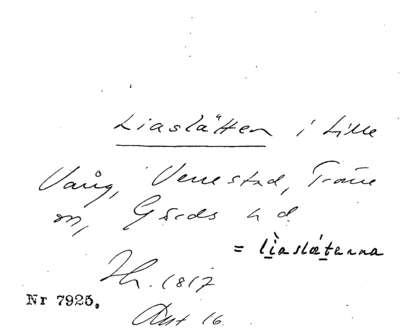 Liaslätten i Lille
Vång, Venestad, Träne
sn, Gärds hd.
= lìaslátenna
1817
Nr 7925.
Akt 16.